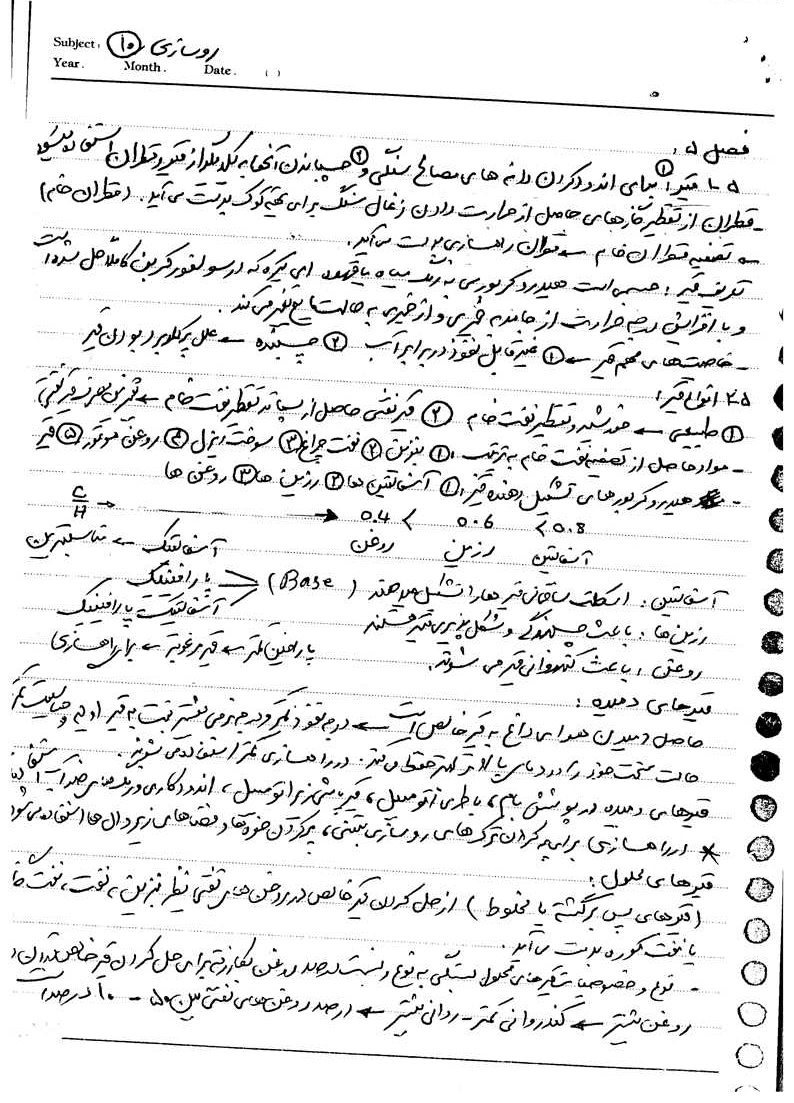 Subject: روسازی (۱۰)
Year. Month. Date. ( )
فصل ۵:
۵-۱ قیر: ① برای اندود کردن دانه های مصالح سنگی و ② چسباندن آنها به یکدیگر از قیر و قطران استفاده میشود
- قطران از تقطیر گازهای حاصل از حرارت دادن زغال سنگ برای تهیه کوک بدست می آید. (قطران خام)
← تصفیه قطران خام ← قطران راهسازی بدست می آید.
تعریف قیر: جسمی است هیدروکربوری به رنگ سیاه یا قهوه ای تیره که در سولفور کربن کاملاً حل شده است
و با افزایش درجه حرارت از جامد به خمیری و از خمیری به حالت مایع تغییر می کند.
- خاصیت های مهم قیر ← ① غیر قابل نفوذ در برابر آب ② چسبنده ← علل پرکاربرد بودن قیر
۵-۲ انواع قیر:
① طبیعی ← تقطیر نفت خام ② قیر نفتی حاصل از تقطیر نفت خام ←
- مواد حاصل از تصفیه نفت خام به ترتیب: ① بنزین ② نفت چراغ ③ سوخت دیزل ④ روغن موتور ⑤ قیر
- هیدروکربورهای تشکیل دهنده قیر: ① آسفالتین ها ② رزین ها ③ روغن ها
C/H → 0.4 < 0.6 < 0.8
آسفالتین رزین روغن
آسفالتیک ← مناسبترین
آسفالتین: اسکلت ساختمانی قیرها را تشکیل میدهند (Base) پارافینیک
رزین ها: باعث چسبندگی و شکل پذیری قیر هستند آسفالتیک پارافینیک
روغن: باعث کندروانی قیر می شوند. پارافین کمتر ← قیر مرغوبتر ← برای راهسازی
قیرهای دمیده:
حاصل دمیدن هوای داغ به قیر خالص است ← درجه نفوذ کمتر و درجه نرمی بیشتر نسبت به قیر اولیه و حساسیت کمتر
حالت سخت خود را در دمای بالاتر بهتر حفظ می کند. در راهسازی کمتر استفاده می شوند.
قیرهای دمیده در پوشش بام، باطری اتومبیل، قیرپاشی زیر اتومبیل، اندودکاری و
* در راهسازی برای پر کردن ترک های روسازی بتنی، پر کردن حفره ها و فضاهای زیر دال ها استفاده می شود
قیرهای محلول:
(قیرهای پس برگشته یا مخلوط) از حل کردن قیر خالص در روغن های نفتی نظیر بنزین، نفت، نفت
یا نفت کوره بدست می آید.
- نوع و خصوصیات قیرهای محلول بستگی به نوع و نسبت درصد روغن بکار رفته برای حل کردن قیر خالص در آن دارد
روغن بیشتر ← کندروانی کمتر - روانی بیشتر ← درصد روغن های نفتی بین ۵۰ - ۱۰ درصد است